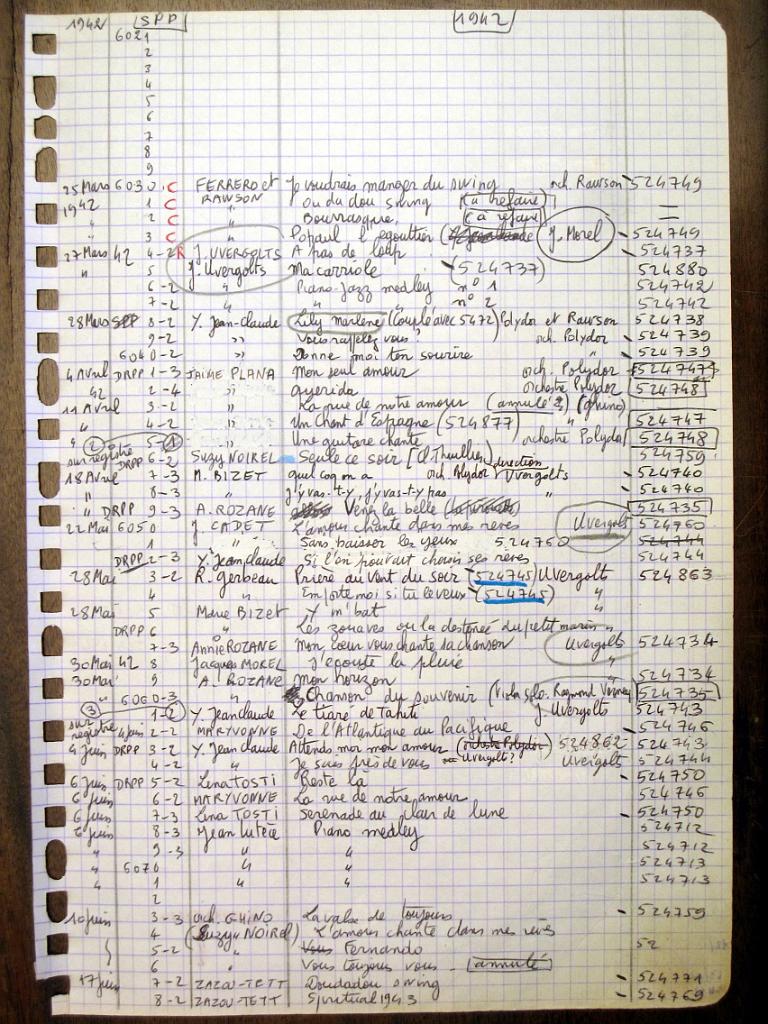 1942 SPP 1942
6021
2
3
4
5
6
7
8
9
25 Mars 6030. C FERRERO et Je voudrais manger du swing orch. Rawson 524749
1942 1 C RAWSON Ou da dou swing (à refaire)
" 2 C " Bourrasque. (à refaire) =
" 3 C " Popaul l'egoutier J. Morel 524749
27 Mars 42 4-2R J. UVERGOLTS A pas de loup 524737
" 5 J. Uvergolts Ma carriole (524737) 524880
6-2 " Piano-Jazz medley n° 1 524742
7-2 " " n° 2 524742
28 Mars SPP 8-2 Y. Jean-Claude Lily Marlène (Couplé avec 5472) Polydor et Rawson 524738
9-2 " Vous rappelez vous? orch. Polydor 524739
6040-2 " Donne moi ton sourire " 524739
4 Avril DRPP 1-3 JAIME PLANA Mon seul amour orch. Polydor 524747
42 2-4 " querida Orchestre Polydor 524748
11 Avril 3-2 " La rue de notre amour (annulé?) (Ghino)
" 4-2 " Un Chant d'Espagne (524877) " 524747
" (2) 5-(1) " Une guitare chante orchestre Polydor 524748
sur registre DRPP 6-2 SUZY NOIREL Seule ce soir [Cl Thuillier] direction 524759
18 Avril 7-3 M. BIZET quel coq on a orch. Polydor Uvergolts 524740
" 8-3 " J'y vas-t-y, j'y vas-t-y pas " 524740
" DRPP 9-3 A. ROZANE Venez la belle 524735
22 Mai 6050 J. CADET L'amour chante dans mes rêves Uvergolts 524760
1 " Sans baisser les yeux 524760 524744
DRPP 2-3 Y. Jean Claude Si l'on pouvait choisir ses rêves 524744
28 Mai 3-2 R. Gerbeau Prière au vent du soir (524745) Uvergolts 524863
4 " Emporte moi si tu le veux (524745) "
28 Mai 5 Marie BIZET Y m'bat "
DRPP 6 " Les zouaves ou la destinée du petit marin "
7-3 Annie ROZANE Mon cœur vous chante sa chanson Uvergolts 524734
30 Mai 42 8 Jacques MOREL J'écoute la pluie "
30 Mai 9 A. ROZANE Mon horizon 524734
" 6060-3 " Chanson du souvenir (Viola solo. Raymond Verney) 524735
(3) 1-2 Y. Jean Claude Le tiaré de Tahiti J. Uvergolts 524743
sur registre 4 Juin 2-2 MARYVONNE De l'Atlantique au Pacifique 524746
4 Juin DRPP 3-2 Y. Jean Claude Attends moi mon amour (orchestre Polydor) 524862 524743
" 4-2 " Je suis près de vous Uvergolts? Uvergolts 524744
6 Juin DRPP 5-2 Lina TOSTI Reste là 524750
6 Juin 6-2 MARYVONNE La rue de notre amour 524746
6 Juin 7-3 Lina TOSTI Serenade au clair de lune 524750
6 Juin 8-3 Jean Lutèce Piano medley 524712
" 9-3 " " 524712
" 6070 " " 524713
" 1 " " 524713
2
10 Juin 3-3 orch. GHINO La valse de toujours 524759
4 (Suzy NOIREL) L'amour chante dans mes rêves
5-2 " Vous Fernando 52
6 " Vous toujours vous - annulé
17 Juin 7-2 ZAZOU-TETT Doudadou swing 524771
8-2 ZAZOU-TETT Spiritual 1943 524769